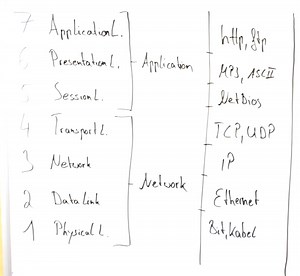 7 Application L. http, ftp
6 Presentation L. Application MP3, ASCII
5 Session L. NetBios
4 Transport L. TCP, UDP
3 Network IP
2 Data Link Network Ethernet
1 Physical L. Bit, Kabel